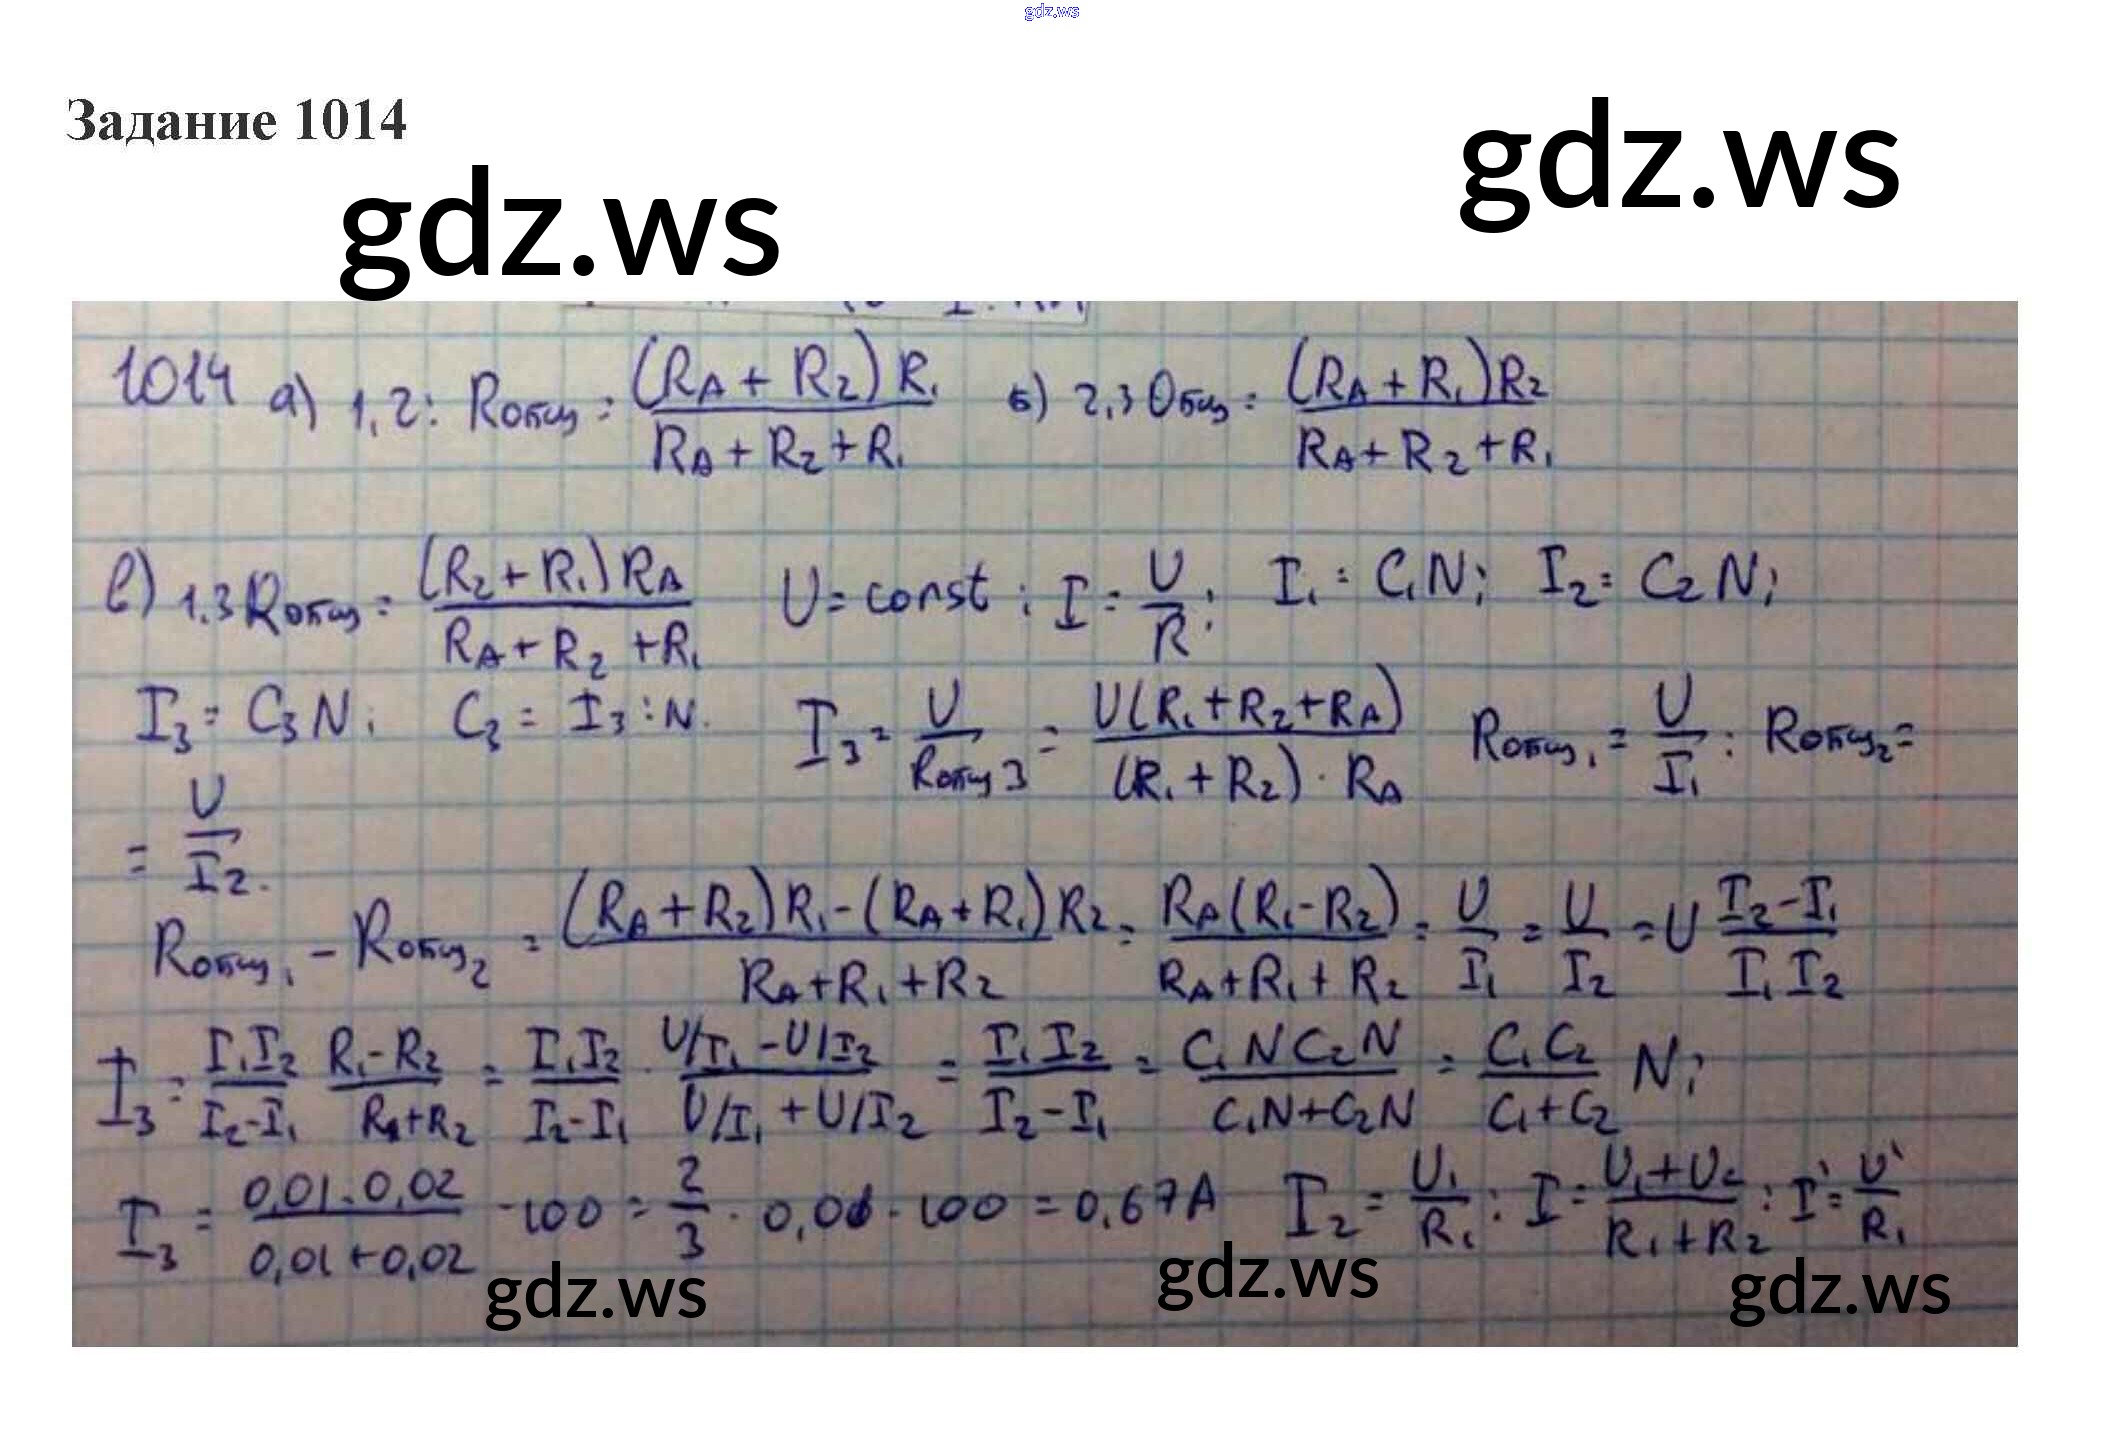 gdz.ws
Задание 1014
gdz.ws
gdz.ws
1014 а) 1,2: Rобщ = (RA + R2) R1 / RA + R2 + R1 б) 2,3 Общ = (RA + R1) R2 / RA + R2 + R1
в) 1.3 Rобщ = (R2 + R1) RA / RA + R2 + R1 U = const ; I = U / R ; I1 = C1N; I2 = C2N;
I3 = C3N; C3 = I3 : N. I3 = U / Rобщ3 = U(R1 + R2 + RA) / (R1 + R2) · RA Rобщ1 = U / I1 ; Rобщ2 =
= U / I2.
Rобщ1 - Rобщ2 = (RA + R2) R1 - (RA + R1) R2 / RA + R1 + R2 = RA (R1 - R2) / RA + R1 + R2 = U / I1 = U / I2 = U I2 - I1 / I1 I2
I3 = I1 I2 / I2 - I1 R1 - R2 / R1 + R2 = I1 I2 / I2 - I1 · U/I1 - U/I2 / U/I1 + U/I2 = I1 I2 / I2 - I1 = C1 N C2 N / C1N + C2N = C1 C2 / C1 + C2 N;
I3 = 0,01 . 0,02 / 0,01 + 0,02 · 100 = 2 / 3 · 0,01 · 100 = 0,67 A I2 = U1 / R1 ; I = U1 + U2 / R1 + R2 ; I' = U' / R1
gdz.ws
gdz.ws
gdz.ws